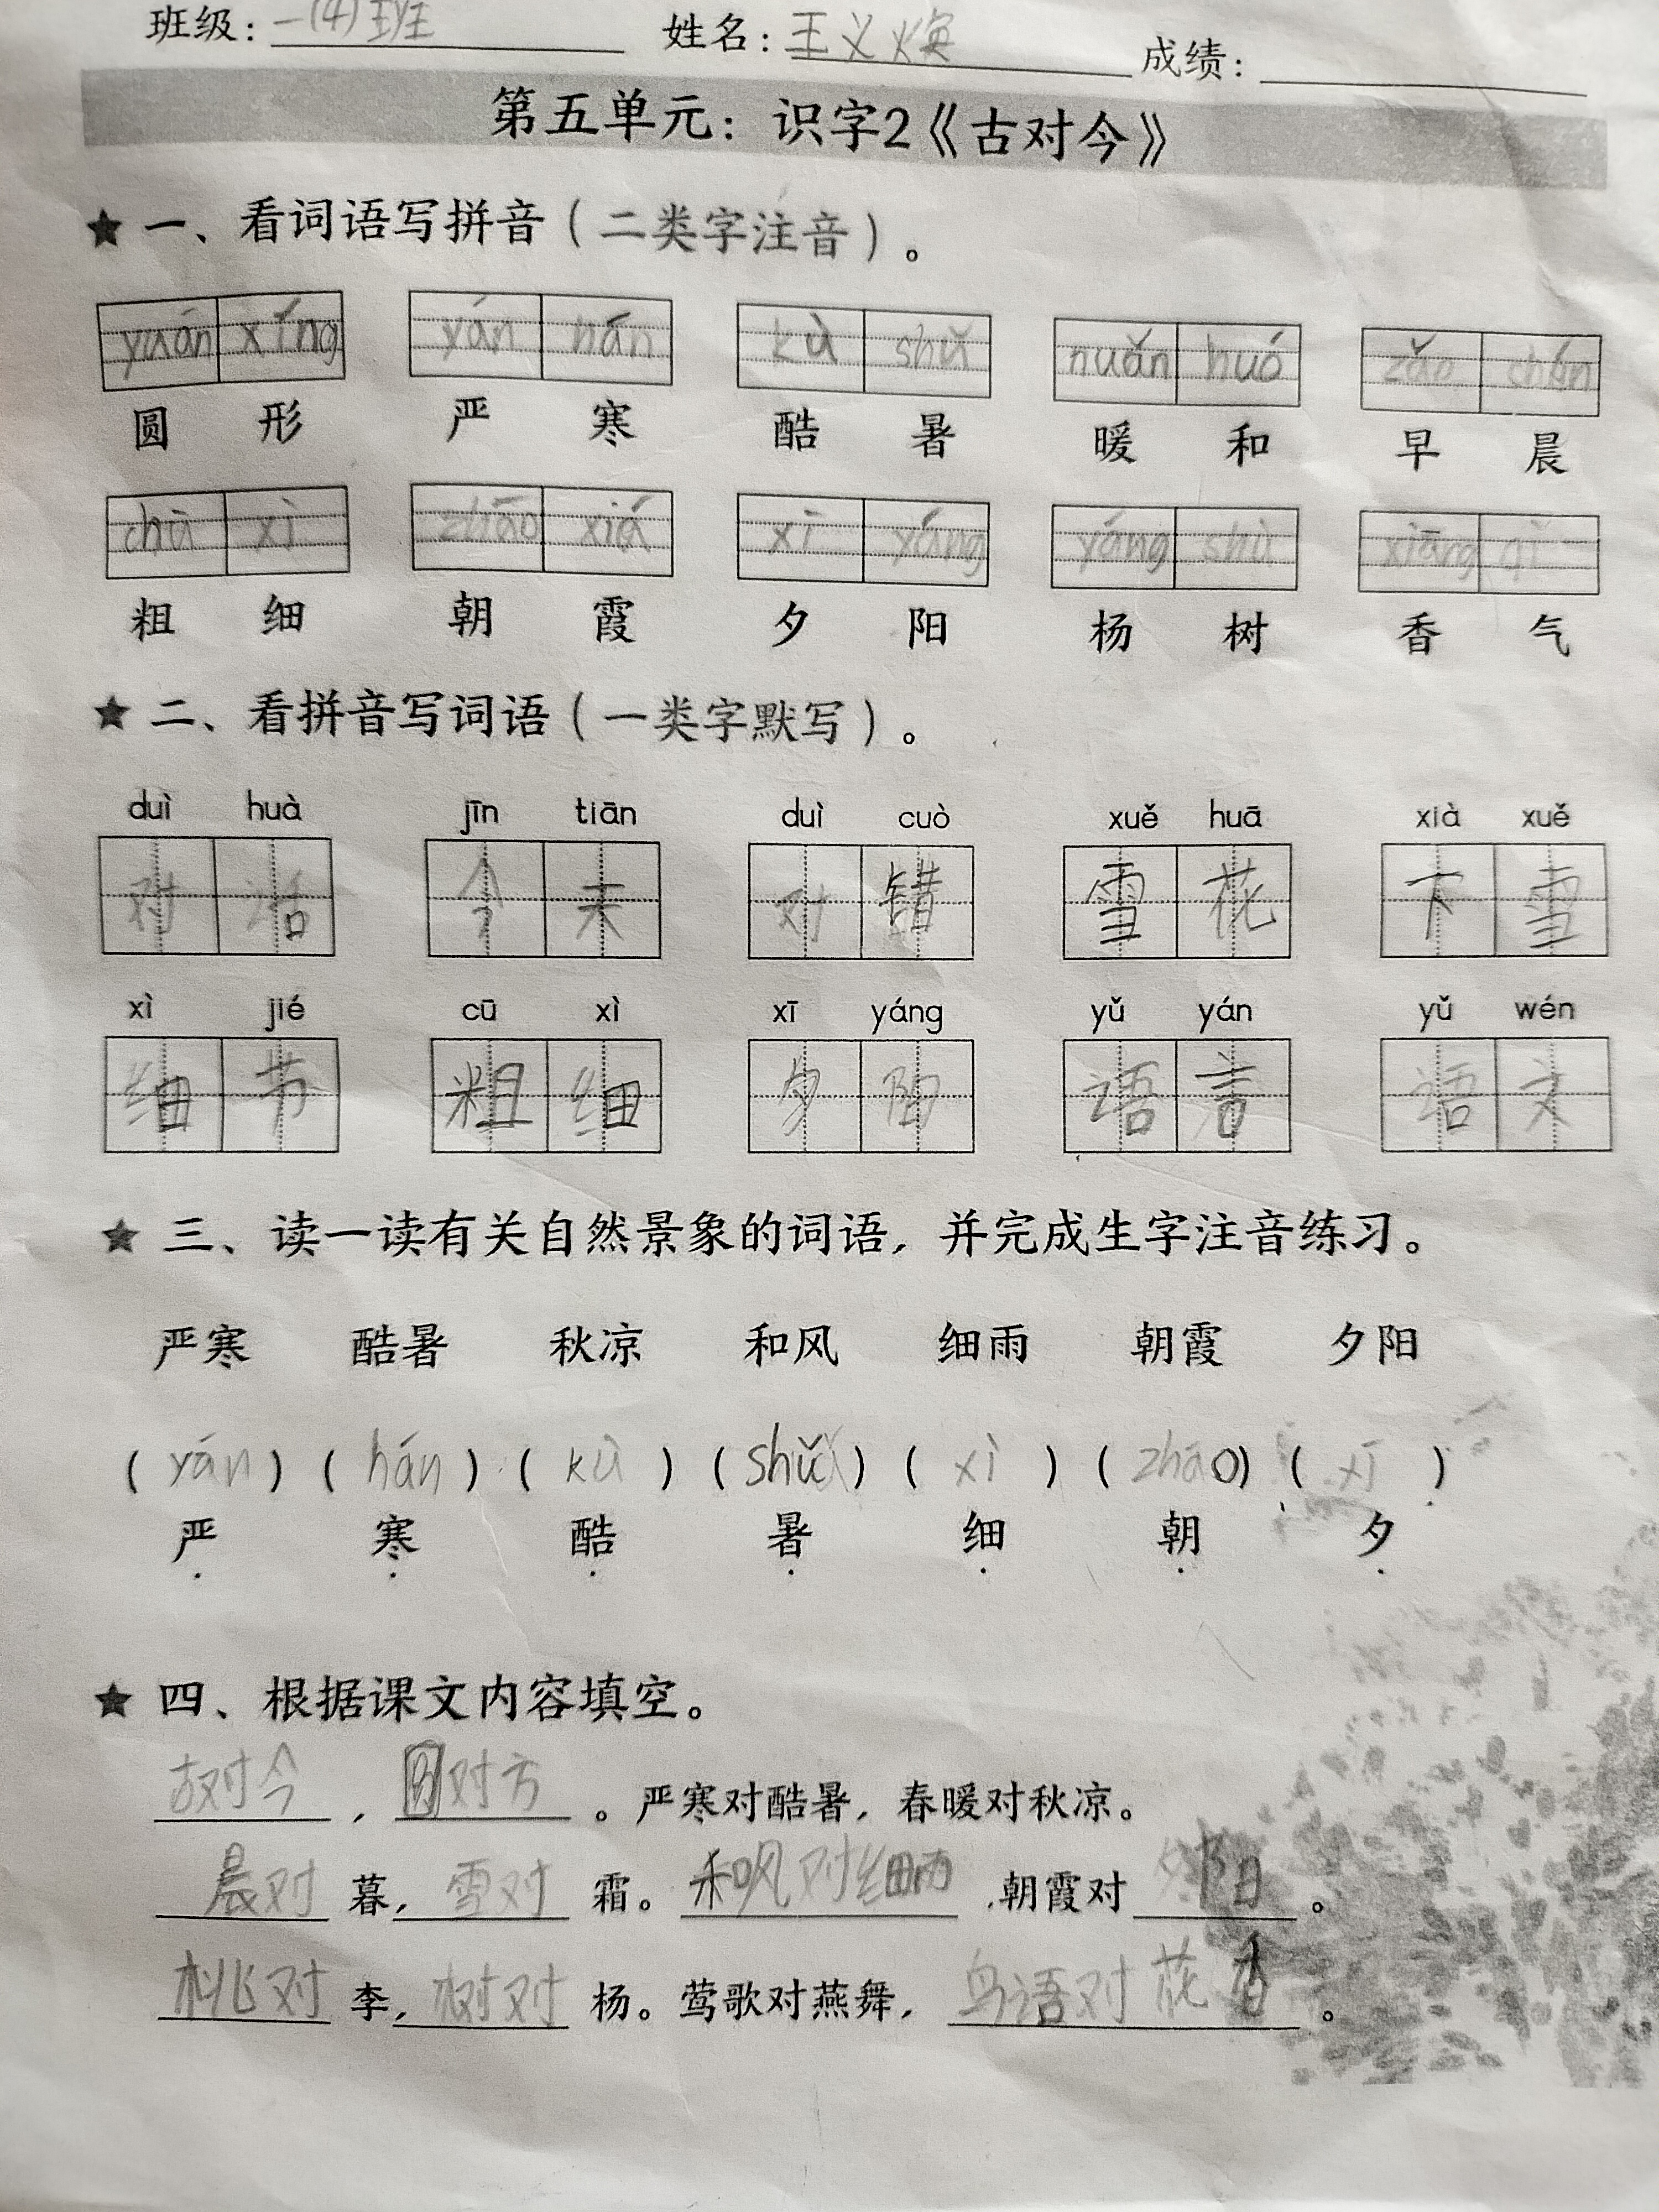 班级：一(4)班 姓名：王义焕 成绩：
第五单元：识字2《古对今》
★ 一、看词语写拼音（二类字注音）。
yuán xíng yán hán kù shǔ nuǎn huó zǎo chén
圆 形 严 寒 酷 暑 暖 和 早 晨
chū xì zhāo xiá xī yáng yáng shù xiāng qì
粗 细 朝 霞 夕 阳 杨 树 香 气
★ 二、看拼音写词语（一类字默写）。
duì huà jīn tiān duì cuò xuě huā xià xuě
对 话 今 天 对 错 雪 花 下 雪
xì jié cū xì xī yáng yǔ yán yǔ wén
细 节 粗 细 夕 阳 语 言 语 文
★ 三、读一读有关自然景象的词语，并完成生字注音练习。
严寒 酷暑 秋凉 和风 细雨 朝霞 夕阳
（yán）（hán）（kù）（shǔ）（xì）（zhāo）（xī）
严 寒 酷 暑 细 朝 夕
★ 四、根据课文内容填空。
古对今，圆对方。严寒对酷暑，春暖对秋凉。
晨对暮，雪对霜。和风对细雨，朝霞对夕阳。
桃对李，树对杨。莺歌对燕舞，鸟语对花香。